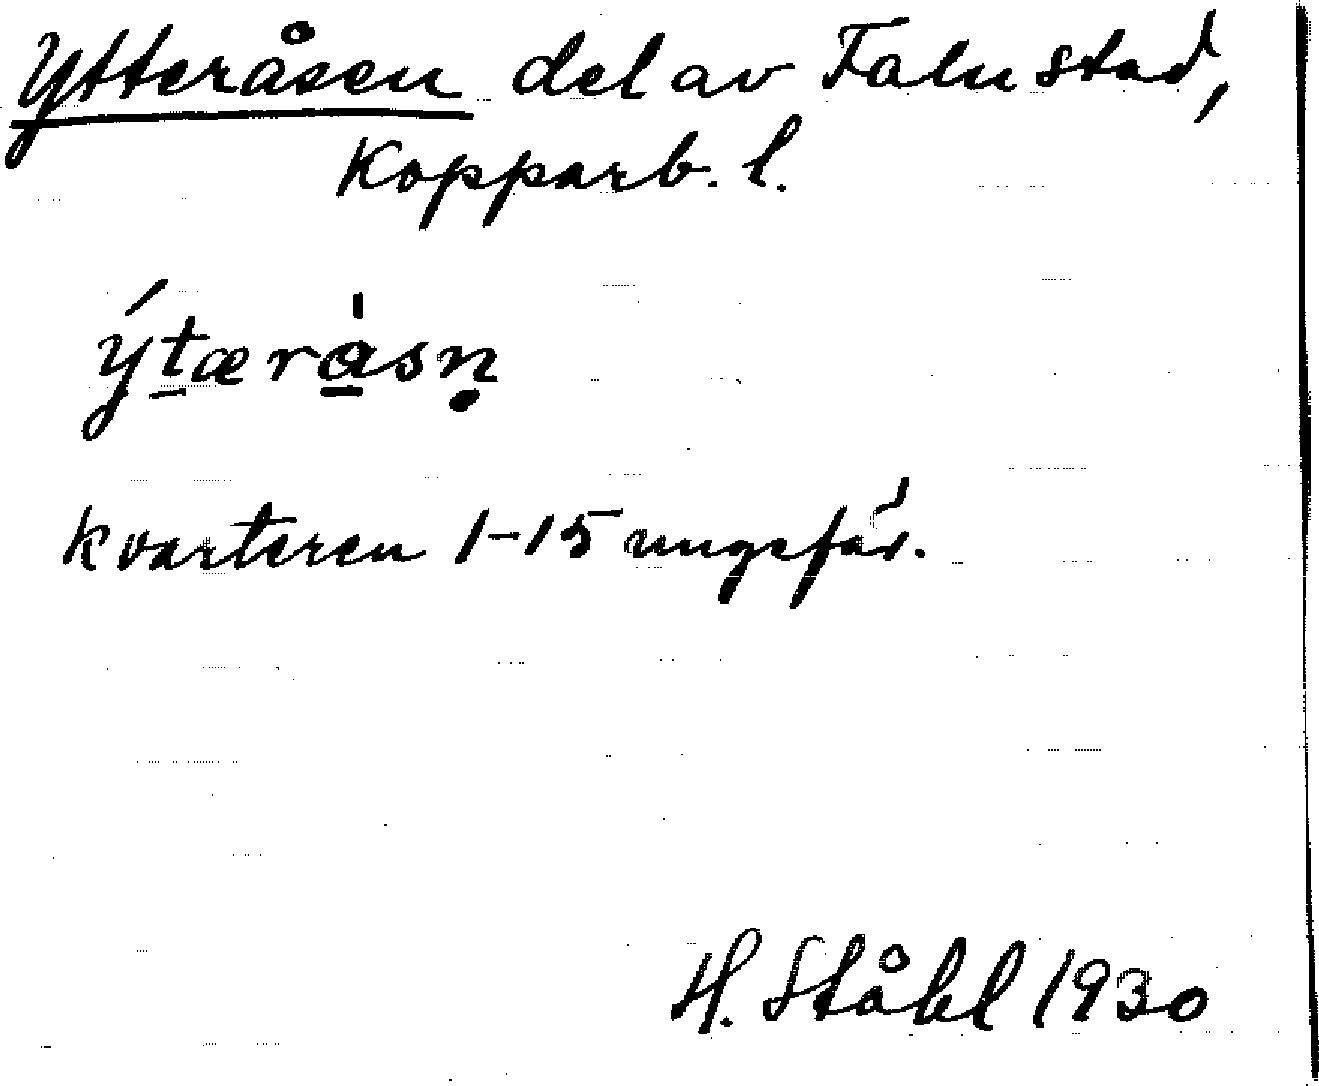 Ytteråsen del av Falu stad,
Kopparb. l.
ýt̲ærȧ̲sṇ
kvarteren 1-15 ungefär.
H. Ståhl 1930